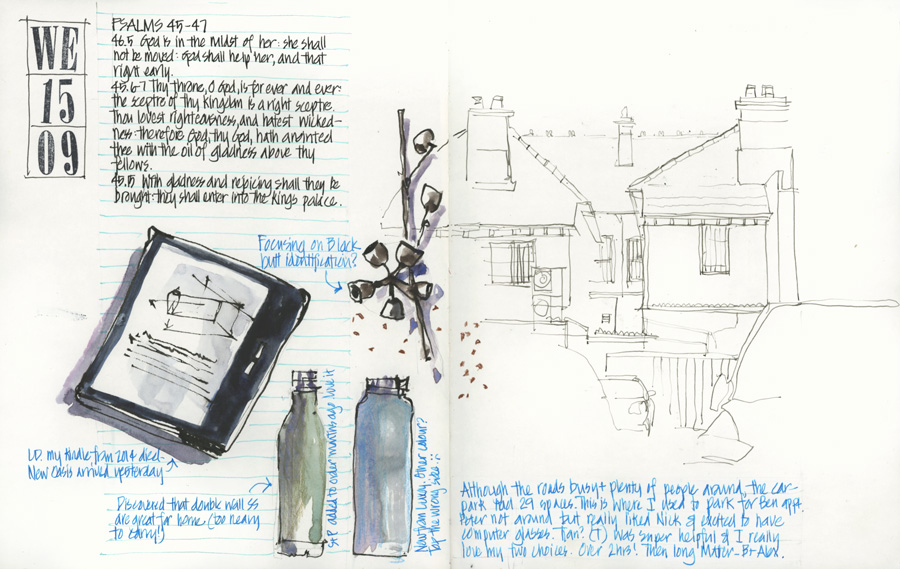 WE
15
09
PSALMS 45-47
46.5 God is in the midst of her: she shall
not be moved: God shall help her, and that
right early.
45.6-7 Thy throne, O God, is for ever and ever:
the sceptre of thy kingdom is a right sceptre.
Thou lovest righteousness, and hatest wicked-
ness: therefore God, thy God, hath anointed
thee with the oil of gladness above thy
fellows.
45.15 With gladness and rejoicing shall they be
brought: they shall enter into the King's palace.
Focusing on Black
butt identification?
my Kindle from 2014 died.
New Oasis arrived yesterday
Discovered that double wall SS
are great for home (too heavy
to carry!)
added to order months ago love it
other colour?
top the wrong side
Although the roads busy + plenty of people around, the car-
park had 29 spaces. This is where I used to park for Ben appt.
Peter not around but really liked Nick & excited to have
computer glasses. Tian? (T) was super helpful & I really
love my two choices. Over 2hrs! Then long Mater - B+Alex.